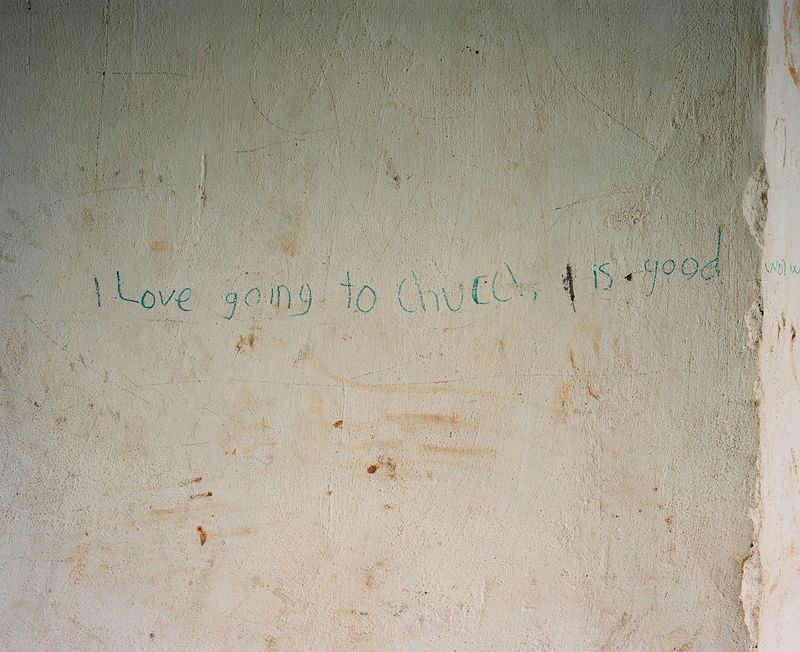 I Love going to church, I is good